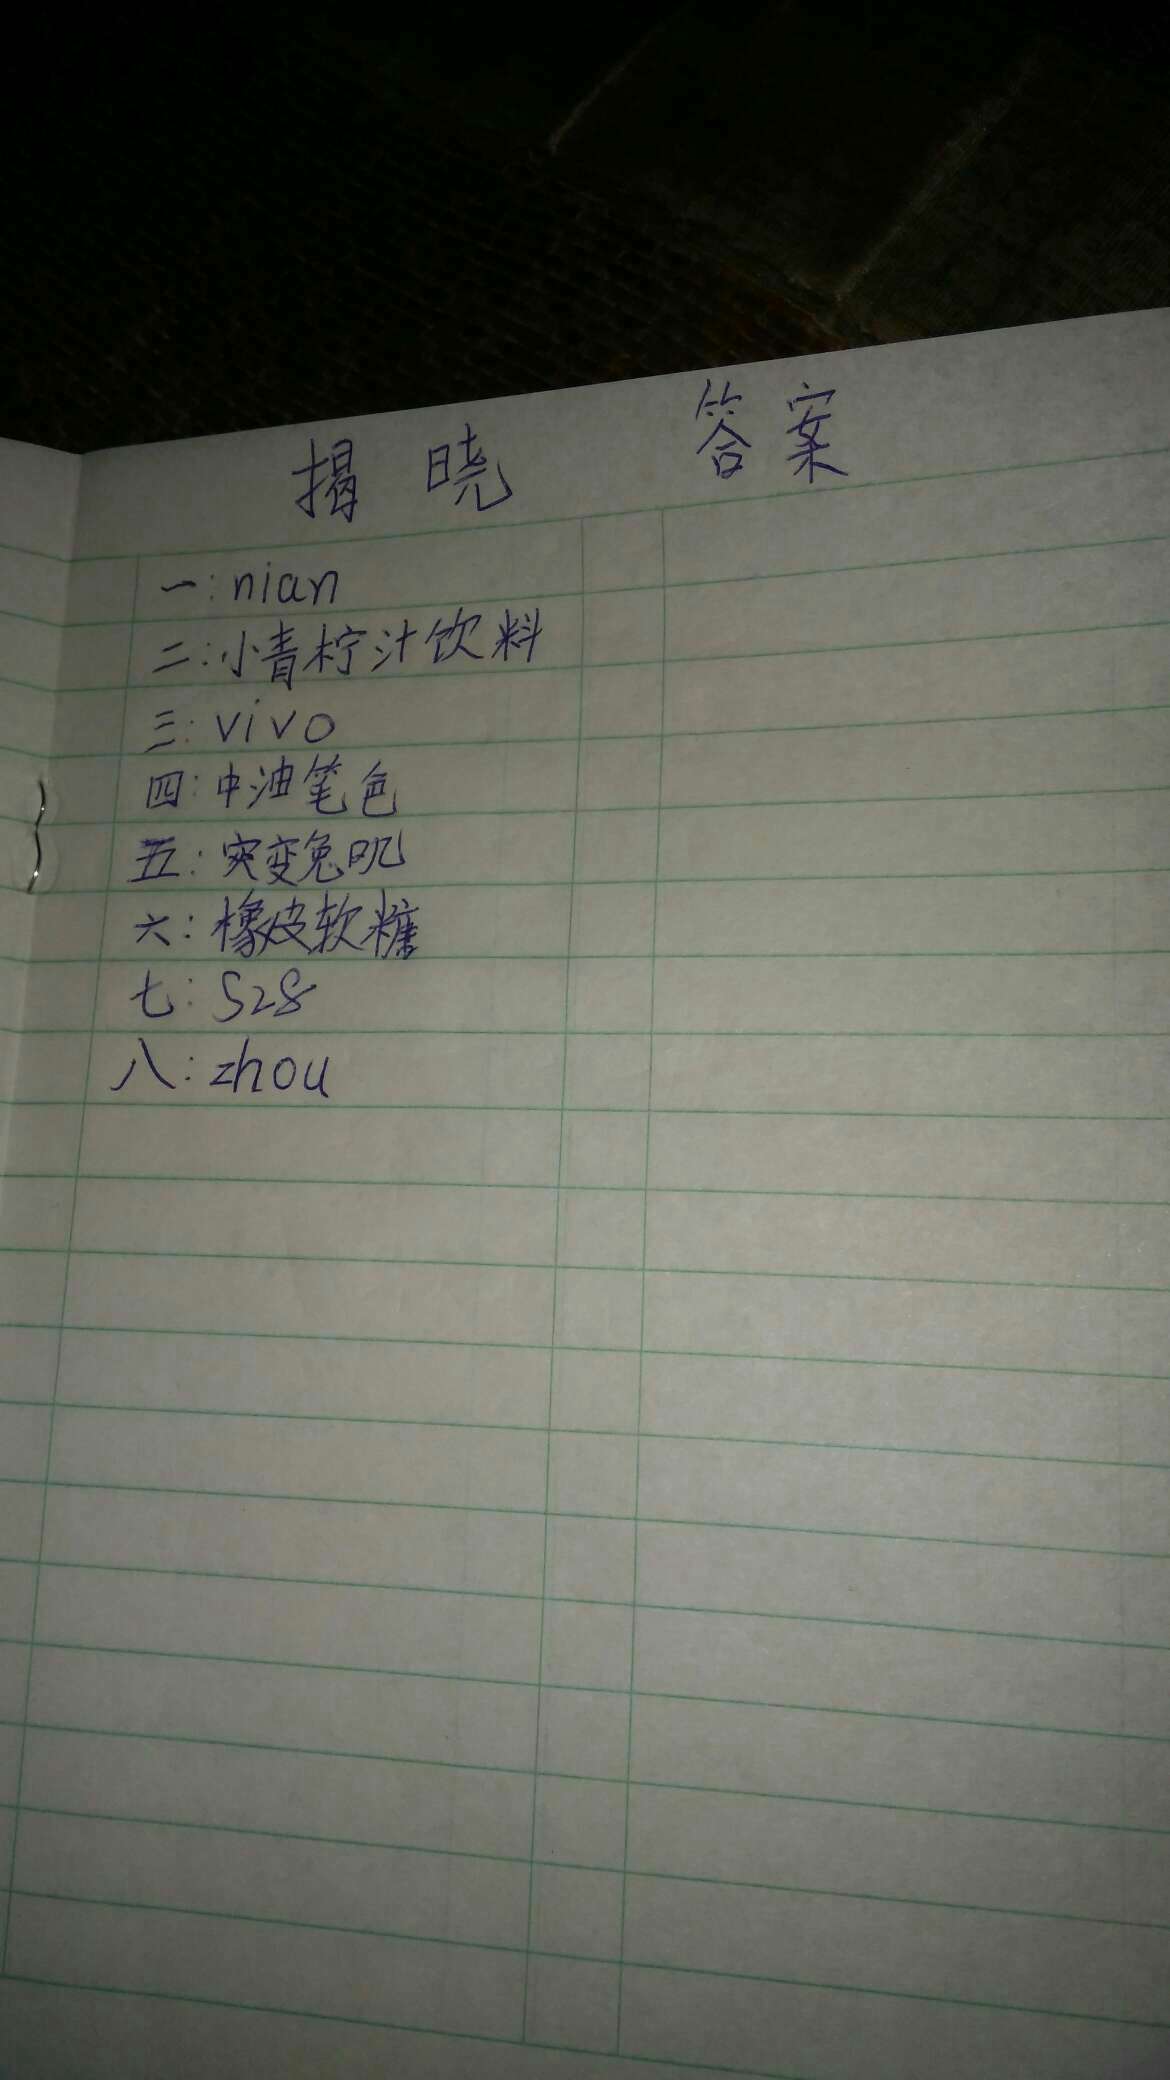 揭晓 答案
一:nian
二:小青柠汁饮料
三:vivo
四:中油笔色
五:突变兔叽
六:橡皮软糖
七:528
八:zhou